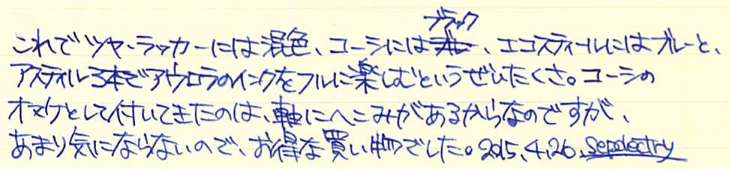 これでツヤ・ラッカーには混色、コーシにはブラック、エコスティールにはブルーと、
アスティル3本でアウロラのインクをフルに楽しむというぜいたくさ。コーシの
オマケとして付いてきたのは、軸にへこみがあるからなのですが、
あまり気にならないので、お得な買い物でした。2015.4.26. sepolectry